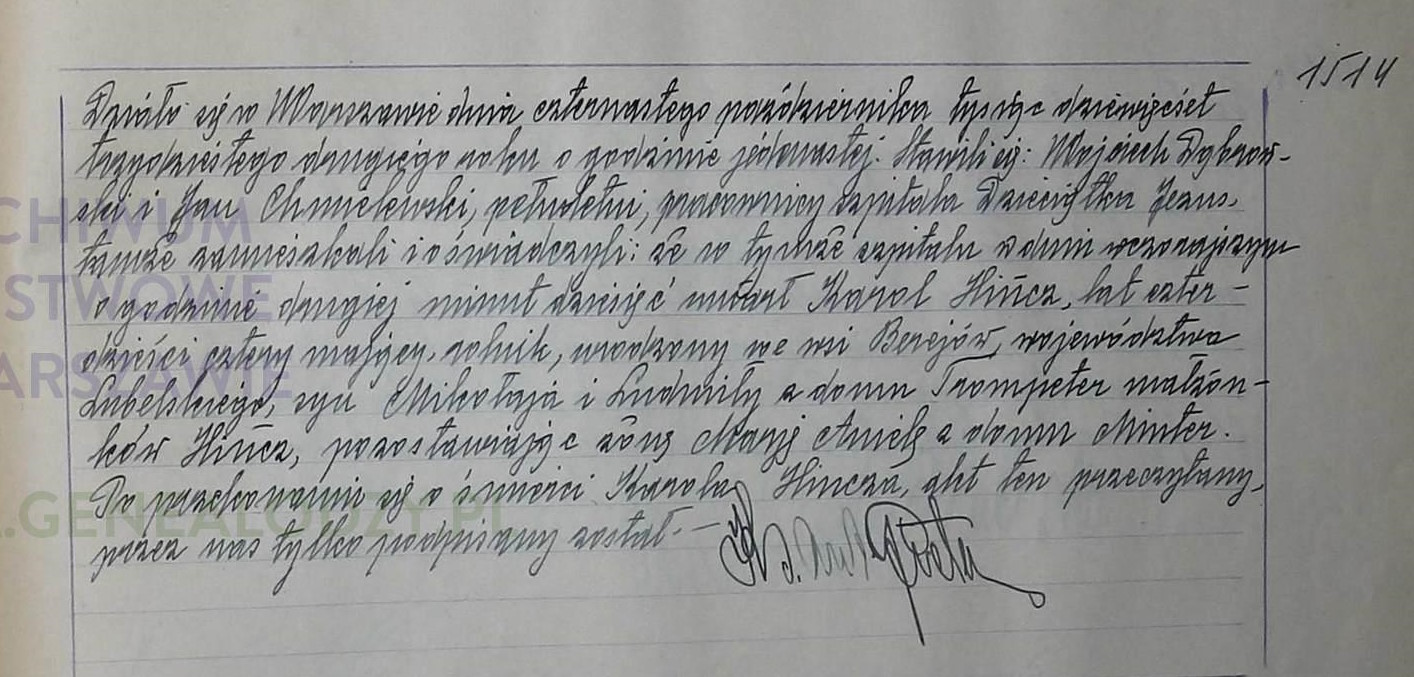 1514
Działo się w Warszawie dnia czternastego października tysiąc dziewięćset
trzydziestego drugiego roku o godzinie jedenastej. Stawili się: Wojciech Dąbrow-
ski i Jan Chmielewski, pełnoletni, pracownicy szpitala Dzieciątka Jezus,
tamże zamieszkali i oświadczyli: że w tymże szpitalu w dniu wczorajszym
o godzinie drugiej minut dziesięć umarł Karol Hińcz, lat czter-
dzieści cztery mający, rolnik, urodzony we wsi Berejów, województwa
Lubelskiego, syn Mikołaja i Ludwiły z domu Trompeter małżon-
ków Hińcz, pozostawiając żonę Marję Anielę z domu Minter.
Po przekonaniu się o śmierci Karola Hińcza, akt ten przeczytany,
przez nas tylko podpisany został.—
CHIWUM
STWOWE
ARSZAWIE
.GENEALODZY.PL